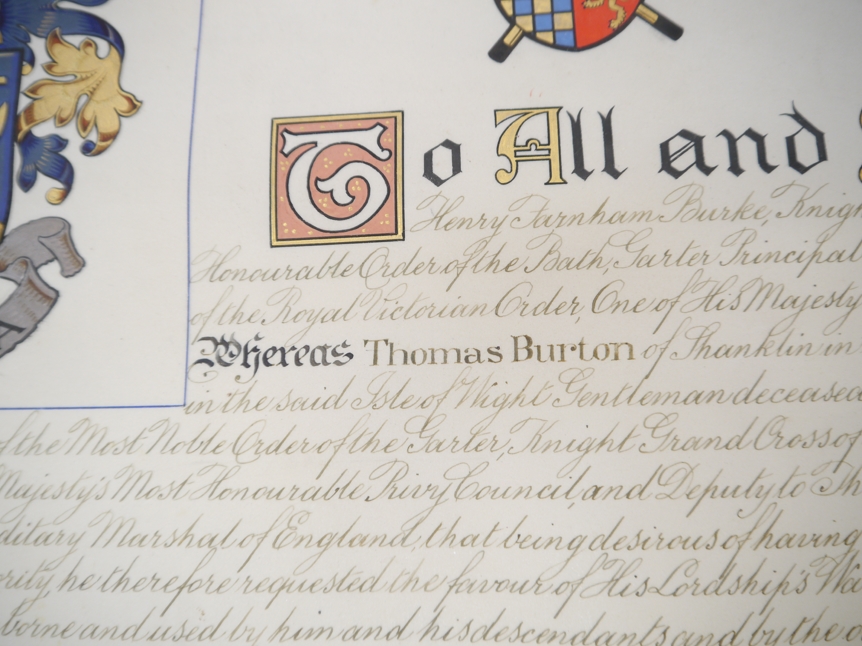 To All and
Henry Farnham Burke, Knigh
Honourable Order of the Bath, Garter Principal
of the Royal Victorian Order, One of His Majesty
Whereas Thomas Burton of Shanklin in
in the said Isle of Wight Gentleman deceased
of the Most Noble Order of the Garter, Knight Grand Cross of
Majesty's Most Honourable Privy Council, and Deputy to Th
ditary Marshal of England, that being desirous of having
ority, he therefore requested the favour of His Lordship's Wa
borne and used by him and his descendants and by the o